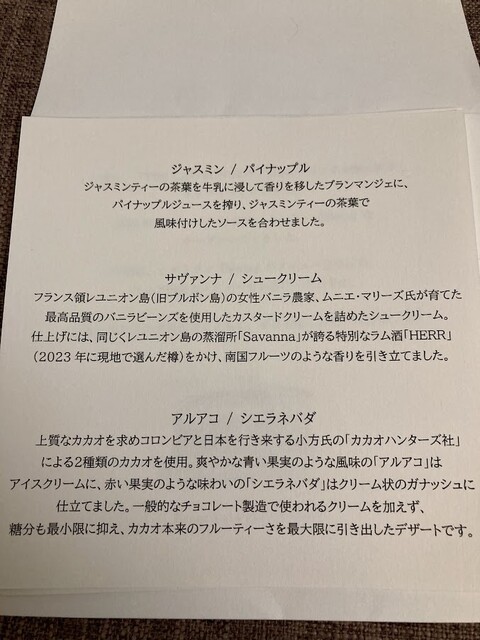 ジャスミン / パイナップル
ジャスミンティーの茶葉を牛乳に浸して香りを移したブランマンジェに、
パイナップルジュースを搾り、ジャスミンティーの茶葉で
風味付けしたソースを合わせました。
サヴァンナ / シュークリーム
フランス領レユニオン島（旧ブルボン島）の女性バニラ農家、ムニエ・マリーズ氏が育てた
最高品質のバニラビーンズを使用したカスタードクリームを詰めたシュークリーム。
仕上げには、同じくレユニオン島の蒸溜所「Savanna」が誇る特別なラム酒「HERR」
（2023 年に現地で選んだ樽）をかけ、南国フルーツのような香りを引き立てました。
アルアコ / シエラネバダ
上質なカカオを求めコロンビアと日本を行き来する小方氏の「カカオハンターズ社」
による2種類のカカオを使用。爽やかな青い果実のような風味の「アルアコ」は
アイスクリームに、赤い果実のような味わいの「シエラネバダ」はクリーム状のガナッシュに
仕立てました。一般的なチョコレート製造で使われるクリームを加えず、
糖分も最小限に抑え、カカオ本来のフルーティーさを最大限に引き出したデザートです。